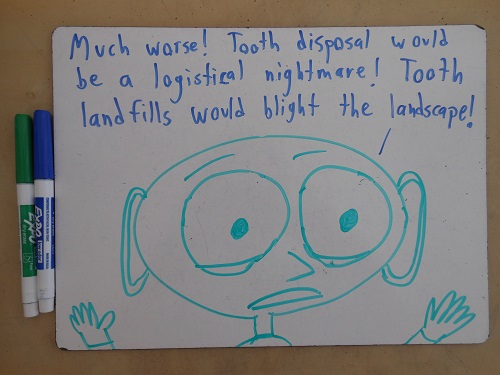 Much worse! Tooth disposal would
be a logistical nightmare! Tooth
landfills would blight the landscape!
EXPO
EXPO